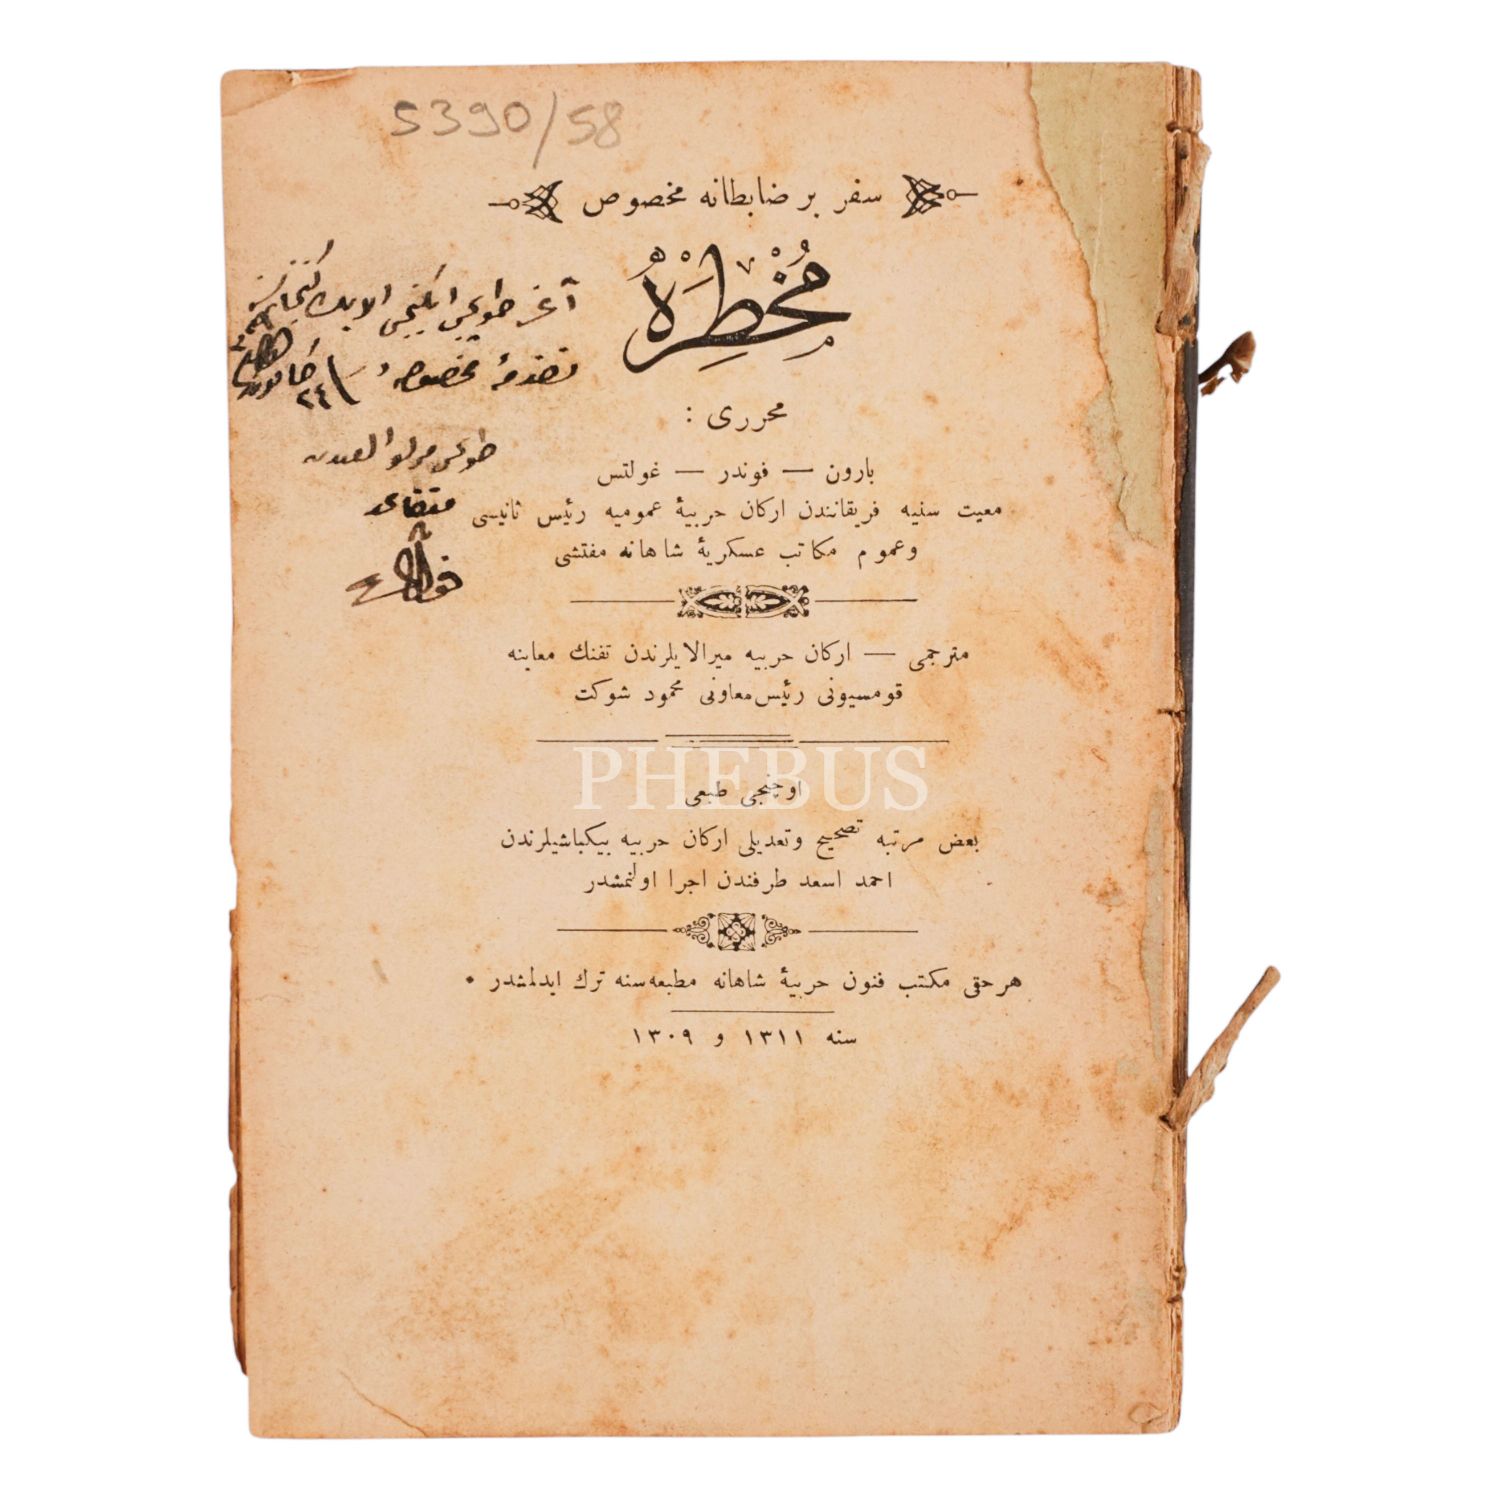 5390/58
سفر بر ضابطانه مخصوص
مُخْطِرَهْ
محرری :
بارون — فوندر — غولتس
معیت سنیه فریقانندن اركان حربیۀ عمومیه رئیس ثانیسی
وعموم مكاتب عسكریۀ شاهانه مفتشی
مترجمی — اركان حربیه میرالایلرندن تفنك معاینه
قومسیونی رئیس معاونی محمود شوكت
اوچنجی طبعی
بعض مرتبه تصحیح وتعدیلی اركان حربیه بیكباشیلرندن
احمد اسعد طرفندن اجرا اولنمشدر
هر حقی مكتب فنون حربیۀ شاهانه مطبعه‌سنه ترك ایدلمشدر .
سنه ١٣١١ و ١٣٠٩
آغر طوپچی ایكنجی الاینك
تقدمۀ مخصوصه
٢٤
متقاعد
PHEBUS